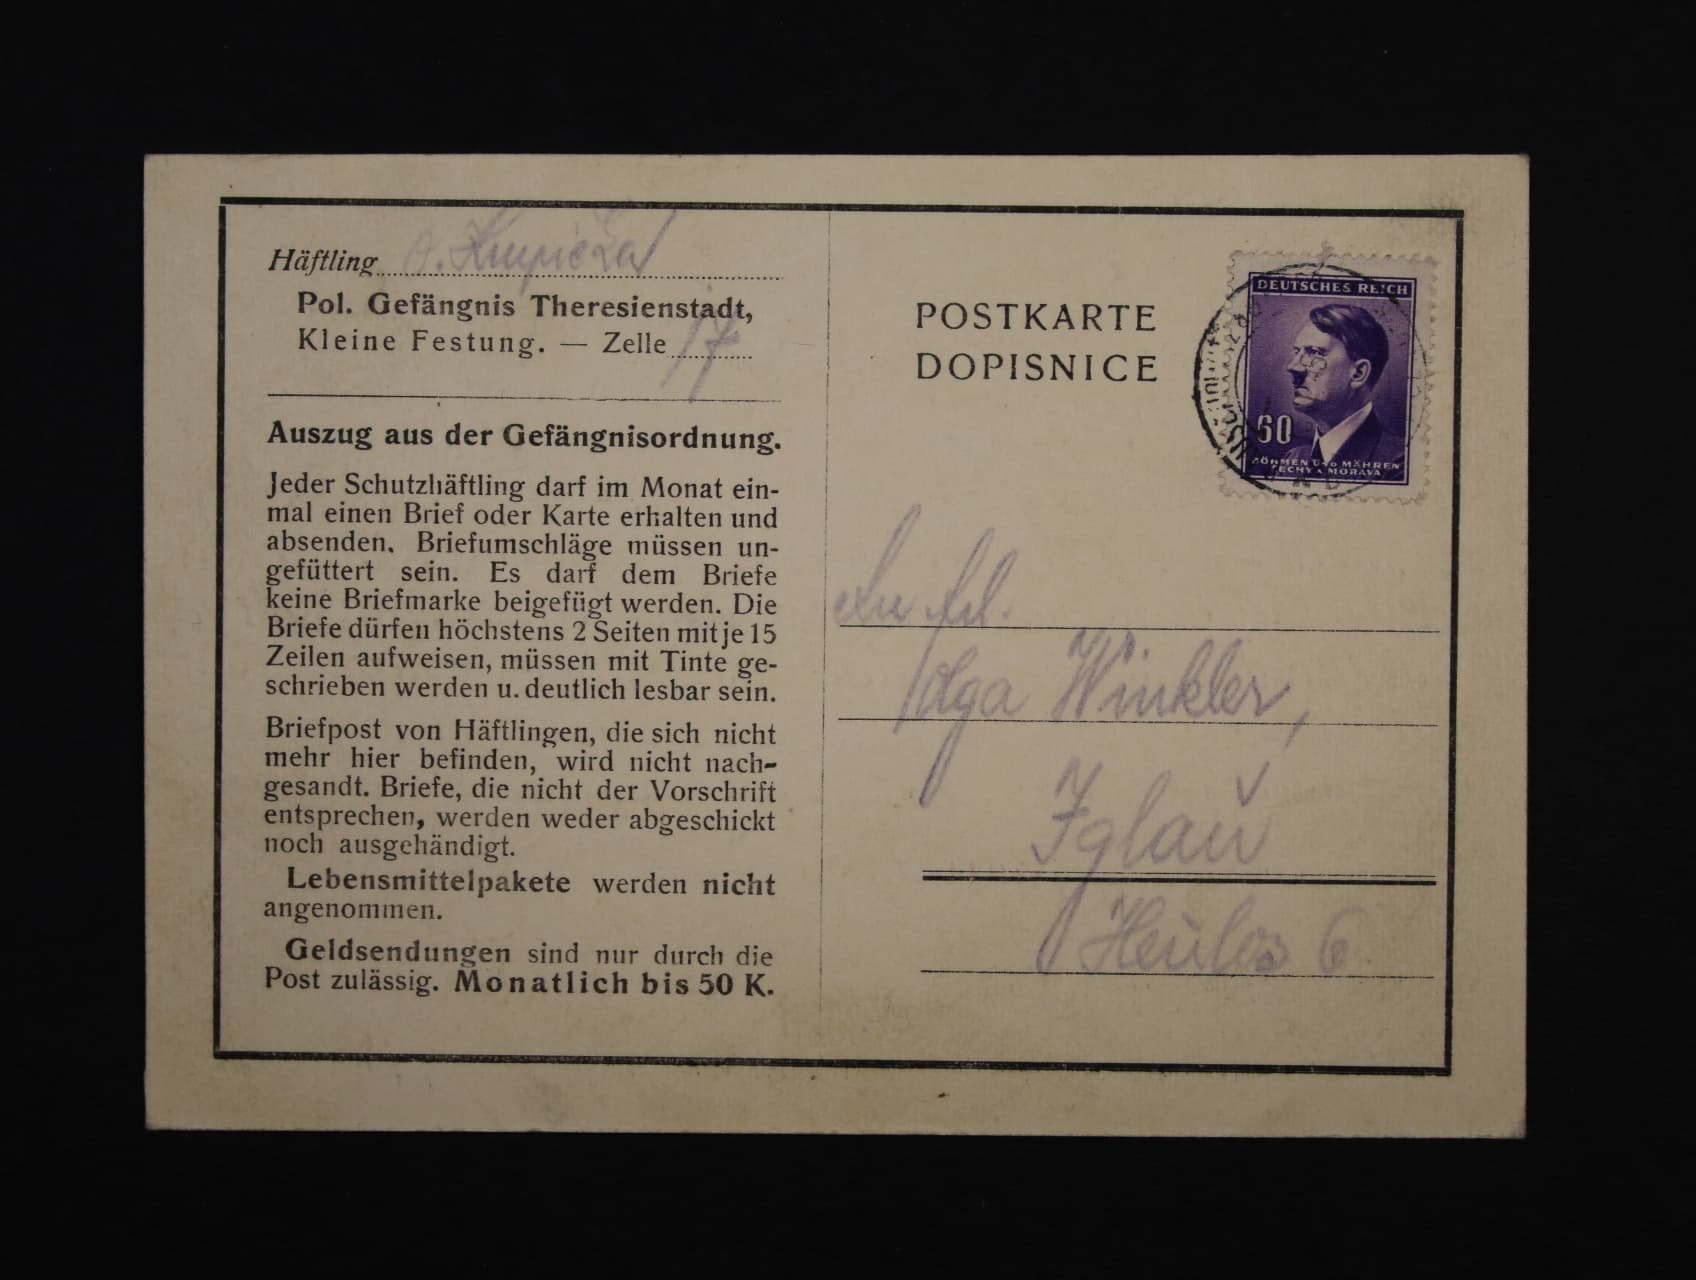 Häftling
Pol. Gefängnis Theresienstadt,
Kleine Festung. — Zelle 17
Auszug aus der Gefängnisordnung.
Jeder Schutzhäftling darf im Monat ein-
mal einen Brief oder Karte erhalten und
absenden. Briefumschläge müssen un-
gefüttert sein. Es darf dem Briefe
keine Briefmarke beigefügt werden. Die
Briefe dürfen höchstens 2 Seiten mit je 15
Zeilen aufweisen, müssen mit Tinte ge-
schrieben werden u. deutlich lesbar sein.
Briefpost von Häftlingen, die sich nicht
mehr hier befinden, wird nicht nach-
gesandt. Briefe, die nicht der Vorschrift
entsprechen, werden weder abgeschickt
noch ausgehändigt.
Lebensmittelpakete werden nicht
angenommen.
Geldsendungen sind nur durch die
Post zulässig. Monatlich bis 50 K.
POSTKARTE
DOPISNICE
DEUTSCHES REICH
60
BÖHMEN UND MÄHREN
ČECHY A MORAVA
Olga Winkler,
Iglau
Heulos 6.